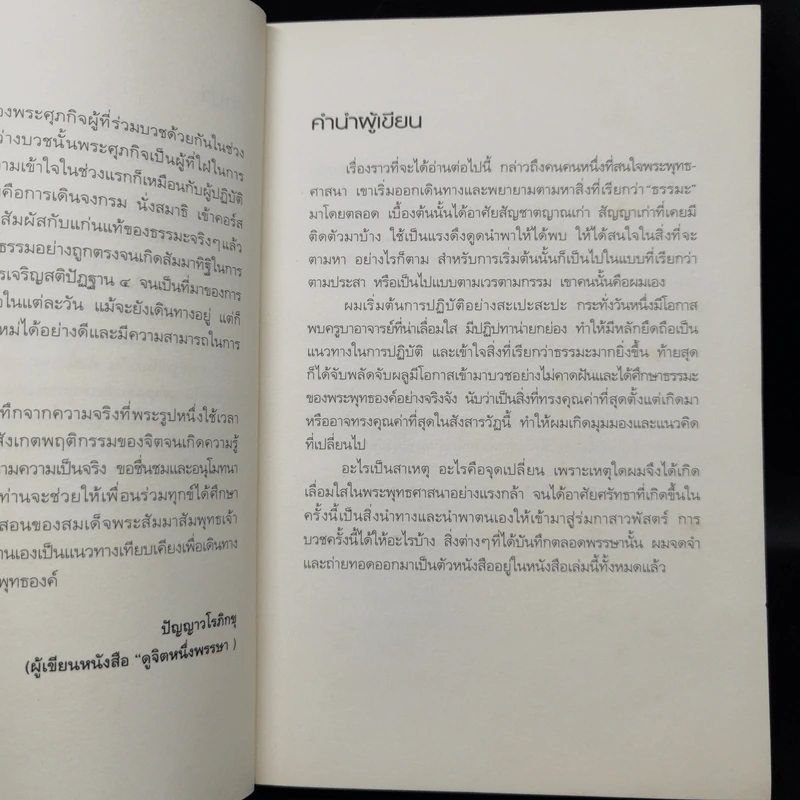 องพระศุภกิจผู้ที่ร่วมบวชด้วยกันในช่วง
ว่างบวชนั้นพระศุภกิจเป็นผู้ที่ใฝ่ในการ
ามเข้าใจในช่วงแรกก็เหมือนกับผู้ปฏิบัติ
คือการเดินจงกรม นั่งสมาธิ เข้าคอร์ส
สัมผัสกับแก่นแท้ของธรรมะจริงๆแล้ว
ธรรมอย่างถูกตรงจนเกิดสัมมาทิฐิในการ
รเจริญสติปัฏฐาน ๔ จนเป็นที่มาของการ
อในแต่ละวัน แม้จะยังเดินทางอยู่ แต่ก็
หม่ได้อย่างดีและมีความสามารถในการ
ทึกจากความจริงที่พระรูปหนึ่งใช้เวลา
สังเกตพฤติกรรมของจิตจนเกิดความรู้
ามความเป็นจริง ขอชื่นชมและอนุโมทนา
ท่านจะช่วยให้เพื่อนร่วมทุกข์ได้ศึกษา
สอนของสมเด็จพระสัมมาสัมพุทธเจ้า
านเองเป็นแนวทางเทียบเคียงเพื่อเดินทาง
พุทธองค์
ปัญญาวโรภิกขุ
(ผู้เขียนหนังสือ "ดูจิตหนึ่งพรรษา )
คำนำผู้เขียน
เรื่องราวที่จะได้อ่านต่อไปนี้ กล่าวถึงคนคนหนึ่งที่สนใจพระพุทธ-
ศาสนา เขาเริ่มออกเดินทางและพยายามตามหาสิ่งที่เรียกว่า"ธรรมะ"
มาโดยตลอด เบื้องต้นนั้นได้อาศัยสัญชาตญาณเก่า สัญญาเก่าที่เคยมี
ติดตัวมาบ้าง ใช้เป็นแรงดึงดูดนำพาให้ได้พบ ให้ได้สนใจในสิ่งที่จะ
ตามหา อย่างไรก็ตาม สำหรับการเริ่มต้นนั้นก็เป็นไปในแบบที่เรียกว่า
ตามประสา หรือเป็นไปแบบตามเวรตามกรรม เขาคนนั้นคือผมเอง
ผมเริ่มต้นการปฏิบัติอย่างสะเปะสะปะ กระทั่งวันหนึ่งมีโอกาส
พบครูบาอาจารย์ที่น่าเลื่อมใส มีปฏิปทาน่ายกย่อง ทำให้มีหลักยึดถือเป็น
แนวทางในการปฏิบัติ และเข้าใจสิ่งที่เรียกว่าธรรมะมากยิ่งขึ้น ท้ายสุด
ก็ได้จับพลัดจับผลูมีโอกาสเข้ามาบวชอย่างไม่คาดฝันและได้ศึกษาธรรมะ
ของพระพุทธองค์อย่างจริงจัง นับว่าเป็นสิ่งที่ทรงคุณค่าที่สุดตั้งแต่เกิดมา
หรืออาจทรงคุณค่าที่สุดในสังสารวัฏนี้ ทำให้ผมเกิดมุมมองและแนวคิด
ที่เปลี่ยนไป
อะไรเป็นสาเหตุ อะไรคือจุดเปลี่ยน เพราะเหตุใดผมจึงได้เกิด
เลื่อมใสในพระพุทธศาสนาอย่างแรงกล้า จนได้อาศัยศรัทธาที่เกิดขึ้นใน
ครั้งนี้เป็นสิ่งนำทางและนำพาตนเองให้เข้ามาสู่ร่มกาสาวพัสตร์ การ
บวชครั้งนี้ได้ให้อะไรบ้าง สิ่งต่างๆที่ได้บันทึกตลอดพรรษานั้น ผมจดจำ
และถ่ายทอดออกมาเป็นตัวหนังสืออยู่ในหนังสือเล่มนี้ทั้งหมดแล้ว